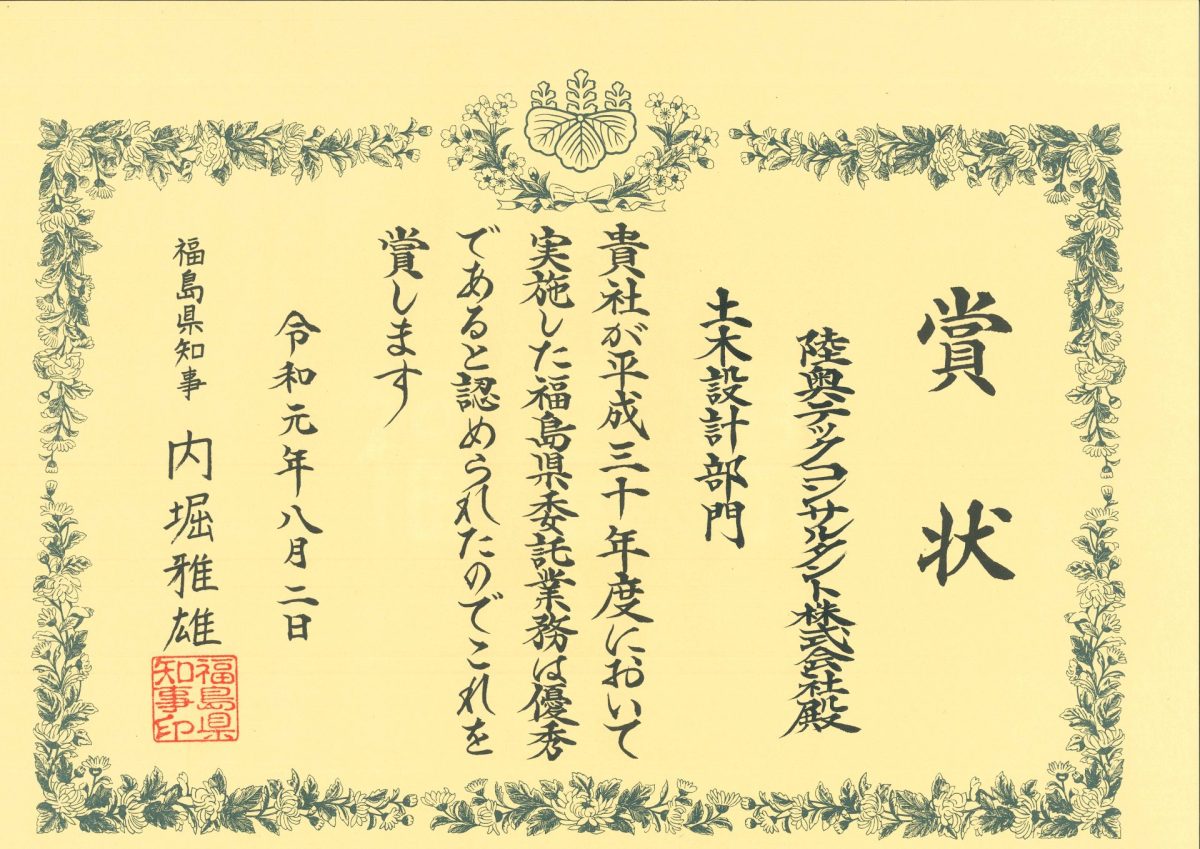 賞状
陸奥テックコンサルタント株式会社殿
土木設計部門
貴社が平成三十年度において
実施した福島県委託業務は優秀
であると認められたのでこれを
賞します
令和元年八月二日
福島県知事 内堀雅雄
福島県
知事印